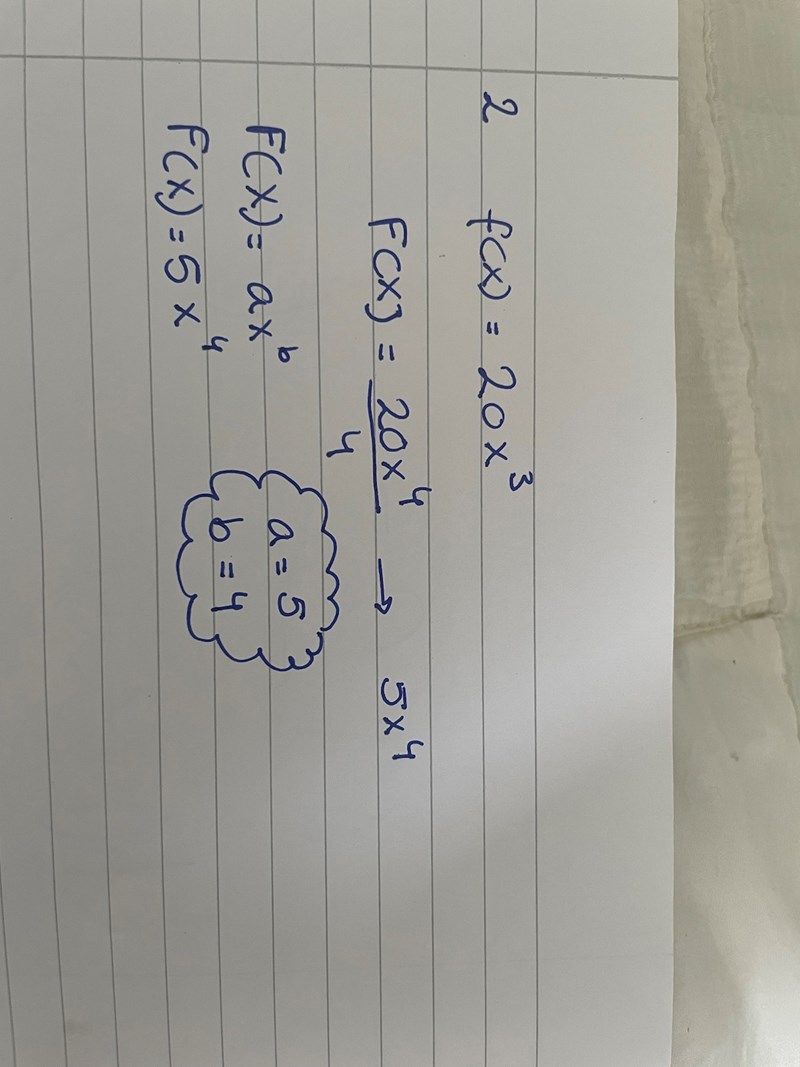 2 f(x) = 20x³
F(x) = 20x⁴/4 → 5x⁴
F(x) = ax^b
F(x) = 5x⁴
a = 5
b = 4